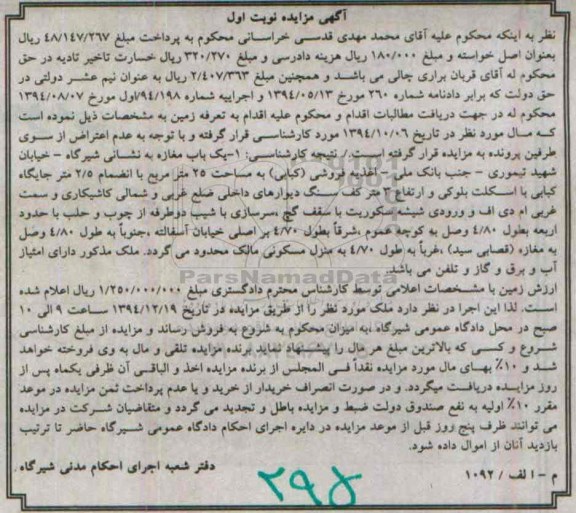 آگهی مزایده نوبت اول
نظر به اینکه محکوم علیه آقای محمد مهدی قدسی خراسانی محکوم به پرداخت مبلغ ۴۸/۱۴۷/۲۶۷ ریال
بعنوان اصل خواسته و مبلغ ۱۸۰/۰۰۰ ریال هزینه دادرسی و مبلغ ۳۲۰/۲۷۰ ریال خسارت تاخیر تادیه در حق
محکوم له آقای قربان براری چالی می باشد و همچنین مبلغ ۲/۴۰۷/۳۶۳ ریال به عنوان نیم عشر دولتی در
حق دولت که برابر دادنامه شماره ۲۶۰ مورخ ۱۳۹۴/۰۵/۱۳ و اجراییه شماره ۹۴/۱۹۸/اول مورخ ۱۳۹۴/۰۸/۰۷
محکوم له در جهت دریافت مطالبات اقدام و محکوم علیه اقدام به تعرفه زمین به مشخصات ذیل نموده است
که مال مورد نظر در تاریخ ۱۳۹۴/۱۰/۰۶ مورد کارشناسی قرار گرفته و با توجه به عدم اعتراض از سوی
طرفین پرونده به مزایده قرار گرفته است./ نتیجه کارشناسی: ۱-یک باب مغازه به نشانی شیرگاه - خیابان
شهید تیموری - جنب بانک ملی - اغذیه فروشی (کبابی) به مساحت ۲۵ متر مربع با انضمام ۲/۵ متر جایگاه
کبابی با اسکلت بلوکی و ارتفاع ۳ متر کف سنگ دیوارهای داخلی ضلع غربی و شمالی کاشیکاری و سمت
غربی ام دی اف و ورودی شیشه سکوریت با سقف گچ ،سرسازی با شیب دوطرفه از چوب و حلب با حدود
اربعه بطول ۴/۸۰ وصل به کوچه عموم ،شرقاً بطول ۴/۷۰ بر اصلی خیابان آسفالته ،جنوباً به طول ۴/۸۰ وصل
به مغازه (قصابی سید) ،غرباً به طول ۴/۷۰ به منزل مسکونی مالک محدود می گردد. ملک مذکور دارای امتیاز
آب و برق و گاز و تلفن می باشد.
ParsNamadData
ارزش زمین با مشخصات اعلامی توسط کارشناس محترم دادگستری مبلغ ۱/۲۵۰/۰۰۰/۰۰۰ ریال اعلام شده
است. لذا این اجرا در نظر دارد ملک مورد نظر را از طریق مزایده در تاریخ ۱۳۹۴/۱۲/۱۹ ساعت ۹ الی ۱۰
صبح در محل دادگاه عمومی شیرگاه ،به میزان محکوم به شروع به فروش رساند و مزایده از مبلغ کارشناسی
شروع و کسی که بالاترین مبلغ هر مال را پیشنهاد نماید برنده مزایده تلقی و مال به وی فروخته خواهد
شد و ۱۰٪ بهای مال مورد مزایده نقداً فی المجلس از برنده مزایده اخذ و الباقی آن ظرفی یکماه پس از
روز مزایده دریافت میگردد. و در صورت انصراف خریدار از خرید و یا عدم پرداخت ثمن مزایده در موعد
مقرر ۱۰٪ اولیه به نفع صندوق دولت ضبط و مزایده باطل و تجدید می گردد و متقاضیان شرکت در مزایده
می توانند ظرف پنج روز قبل از موعد مزایده در دایره اجرای احکام دادگاه عمومی شیرگاه حاضر تا ترتیب
بازدید آنان از اموال داده شود.
دفتر شعبه اجرای احکام مدنی شیرگاه.
م - ا لف / ۱۰۹۲